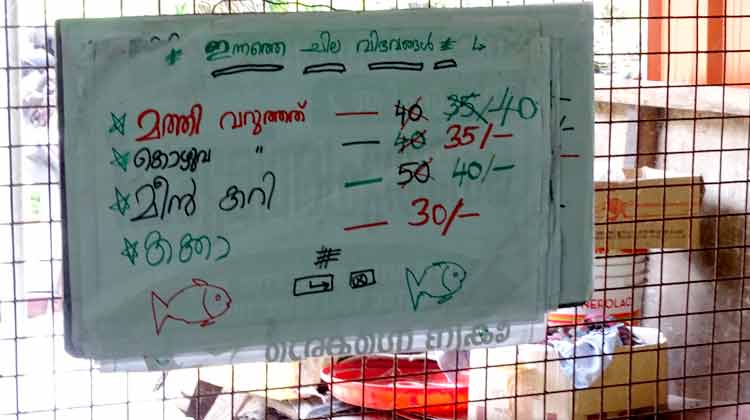 # ഇന്നത്തെ ചില വിഭവങ്ങൾ #
മത്തി വറുത്തത് — 40 35/- 40
കൊഴുവ " — 40 35/-
മീൻ കറി — 50 40/-
കക്കാ — 30/-
#
NEROLAC